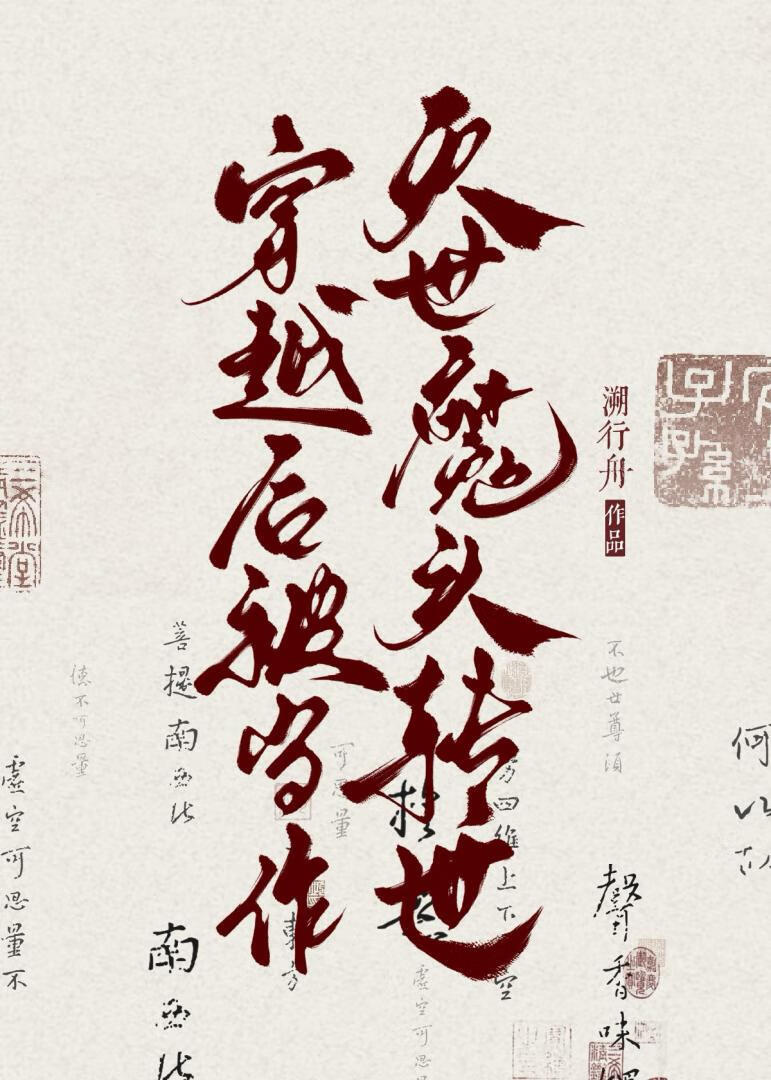 穿越后被当作
灭世魔头转世
溯行舟
作品
不也世尊須
聲香味
何以故
四維上下
空
可思量
東方
虛空可思
菩提南西北
南西北
德不可思量
虛空可思量不